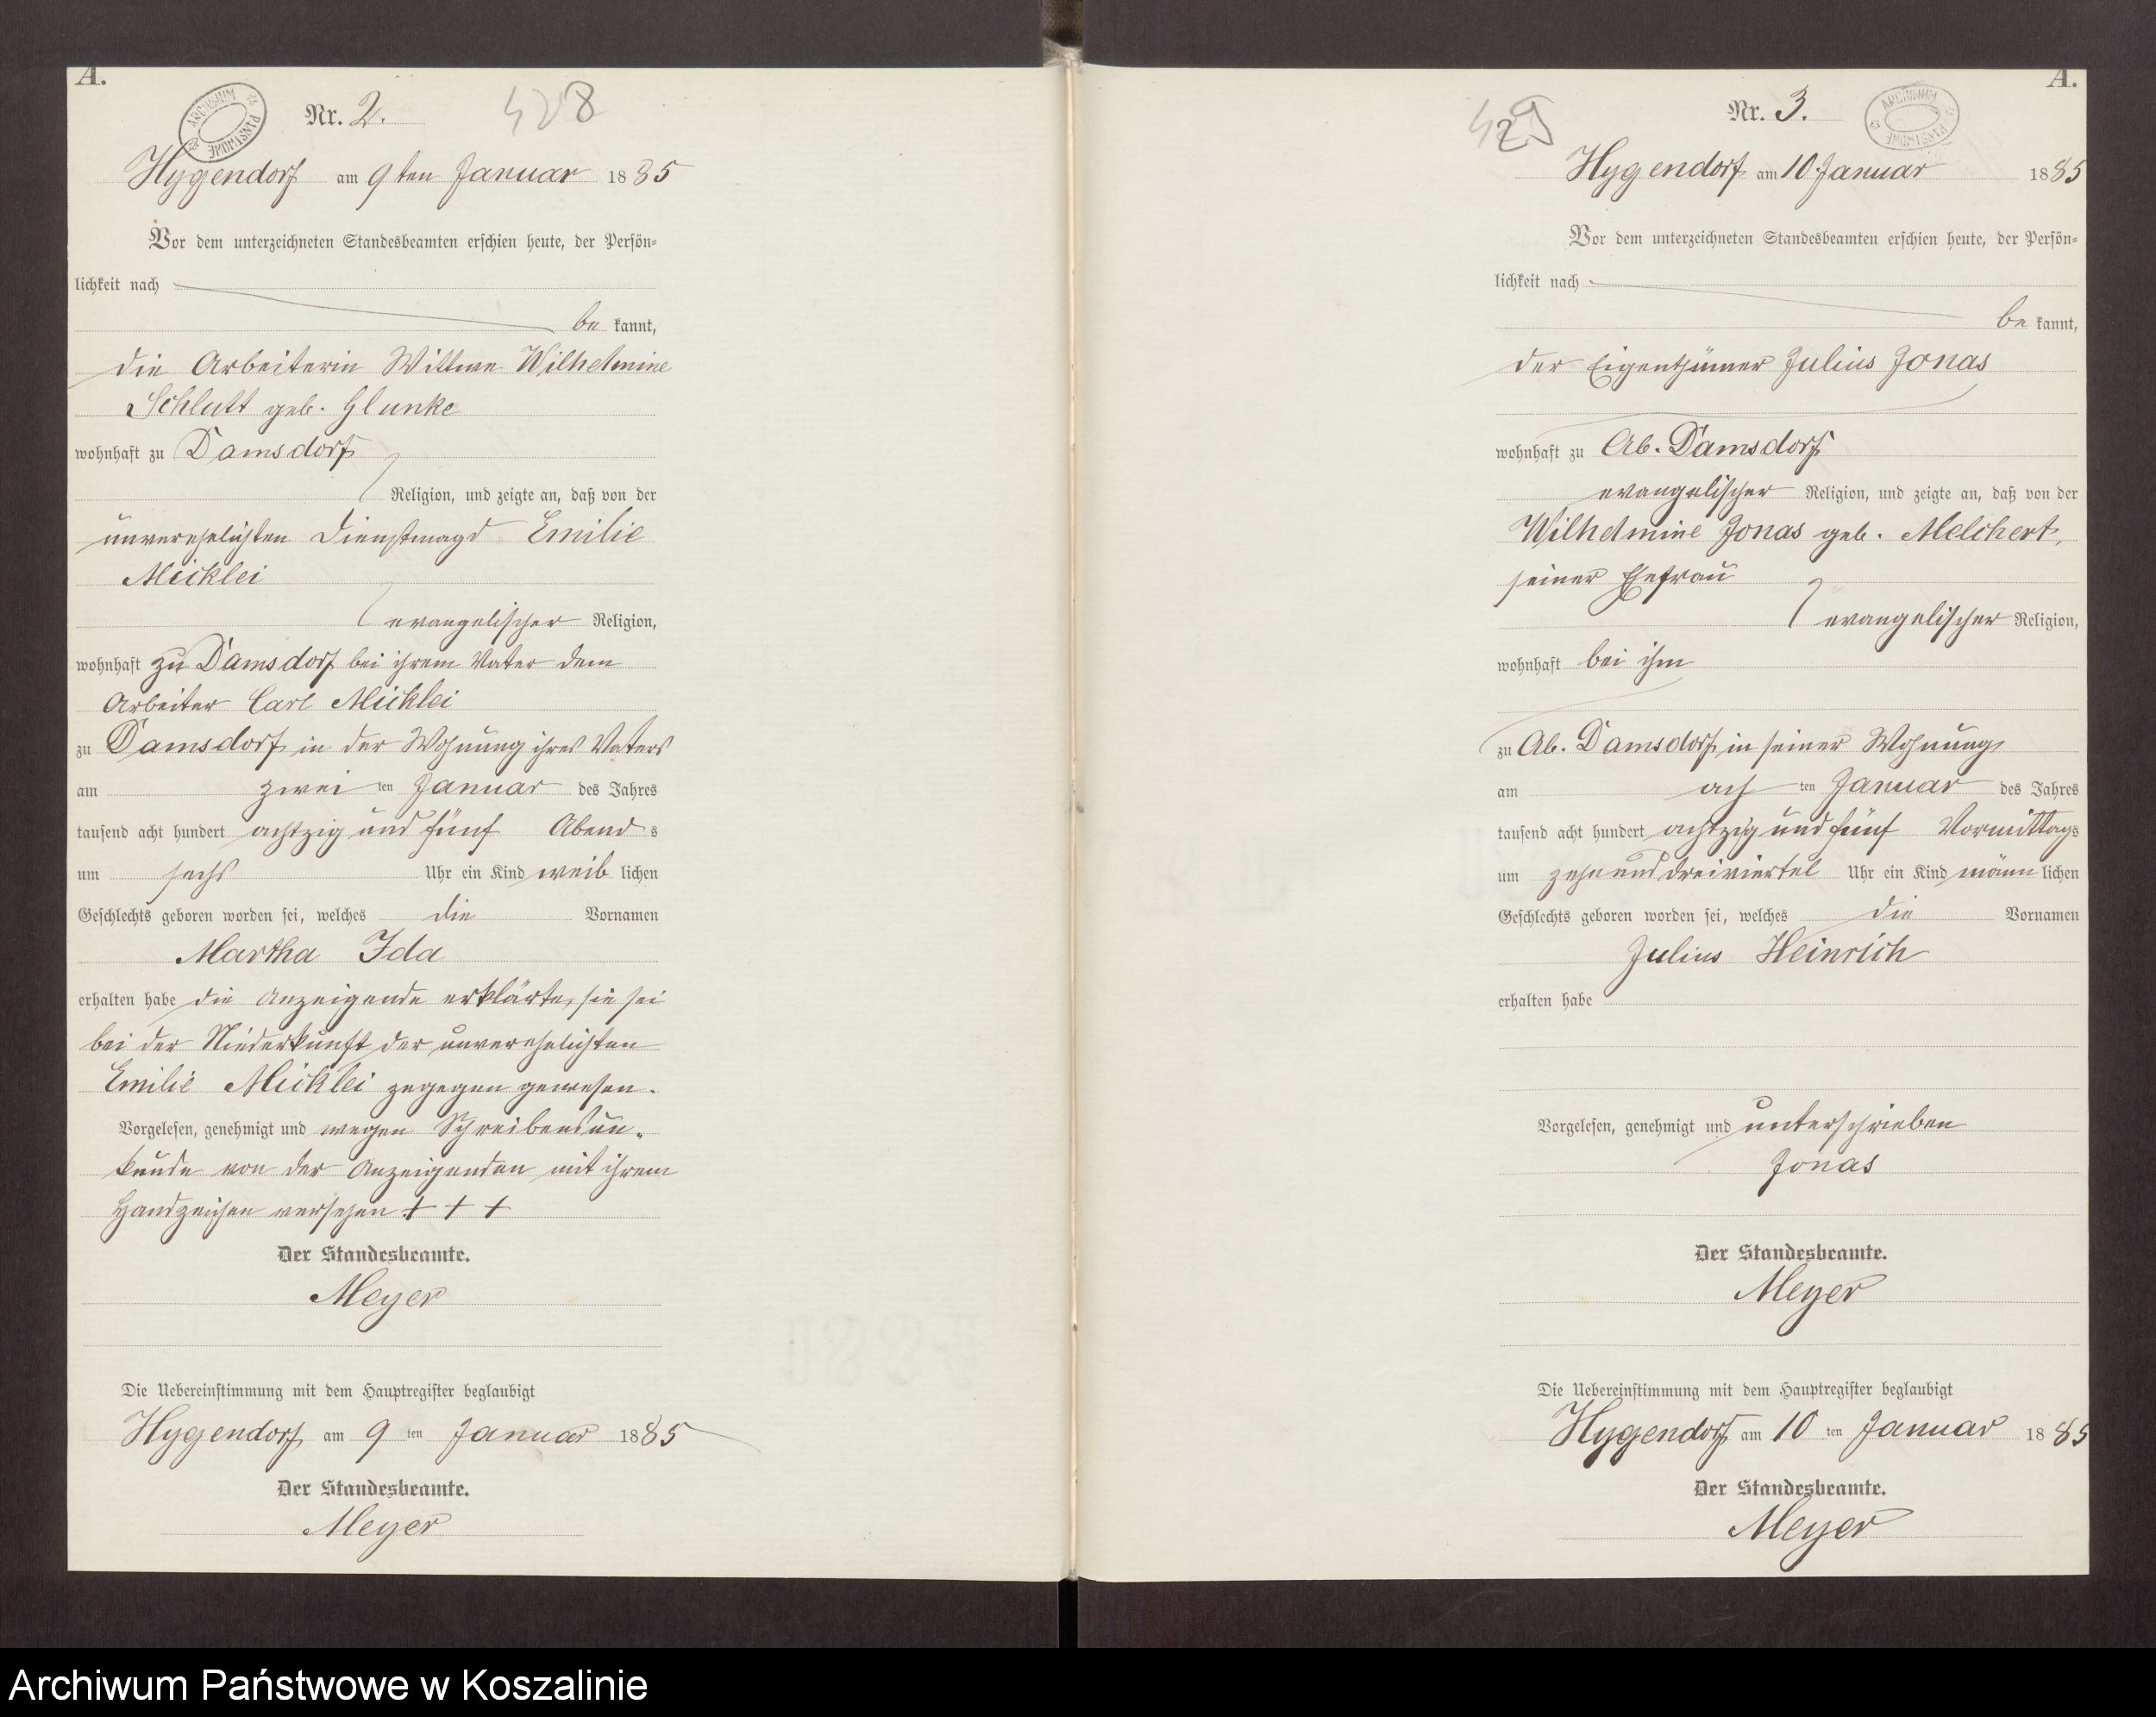 A.
ARCHIWUM PAŃSTWOWE
Nr. 2.
428
Hygendorf am 9ten Januar 1885
Vor dem unterzeichneten Standesbeamten erschien heute, der Persön-
lichkeit nach
be kannt,
die Arbeiterin Wittwe Wilhelmine
Schlutt geb. Glunke
wohnhaft zu Damsdorf
Religion, und zeigte an, daß von der
unverehelichten Dienstmagd Emilie
Micklei
evangelischer Religion,
wohnhaft zu Damsdorf bei ihrem Vater dem
Arbeiter Carl Micklei
zu Damsdorf in der Wohnung ihres Vaters
am zwei ten Januar des Jahres
tausend acht hundert achtzig und fünf Abend s
um sechs Uhr ein Kind weib lichen
Geschlechts geboren worden sei, welches die Vornamen
Martha Ida
erhalten habe die Anzeigende erklärte, sie sei
bei der Niederkunft der unverehelichten
Emilie Micklei zugegen gewesen.
Vorgelesen, genehmigt und wegen Schreibensun-
kunde von der Anzeigenden mit ihrem
Handzeichen versehen + + +
Der Standesbeamte.
Meyer
Die Uebereinstimmung mit dem Hauptregister beglaubigt
Hygendorf am 9 ten Januar 1885
Der Standesbeamte.
Meyer
A.
429
Nr. 3.
ARCHIWUM PAŃSTWOWE
Hygendorf am 10 Januar 1885
Vor dem unterzeichneten Standesbeamten erschien heute, der Persön-
lichkeit nach
be kannt,
der Eigenthümer Julius Jonas
wohnhaft zu Ab. Damsdorf
evangelischer Religion, und zeigte an, daß von der
Wilhelmine Jonas geb. Melchert,
seiner Ehefrau
evangelischer Religion,
wohnhaft bei ihm
zu Ab. Damsdorf in seiner Wohnung
am ach ten Januar des Jahres
tausend acht hundert achtzig und fünf Vormittags
um zehn und dreiviertel Uhr ein Kind männ lichen
Geschlechts geboren worden sei, welches die Vornamen
Julius Heinrich
erhalten habe
Vorgelesen, genehmigt und unterschrieben
Jonas
Der Standesbeamte.
Meyer
Die Uebereinstimmung mit dem Hauptregister beglaubigt
Hygendorf am 10 ten Januar 1885
Der Standesbeamte.
Meyer
Archiwum Państwowe w Koszalinie